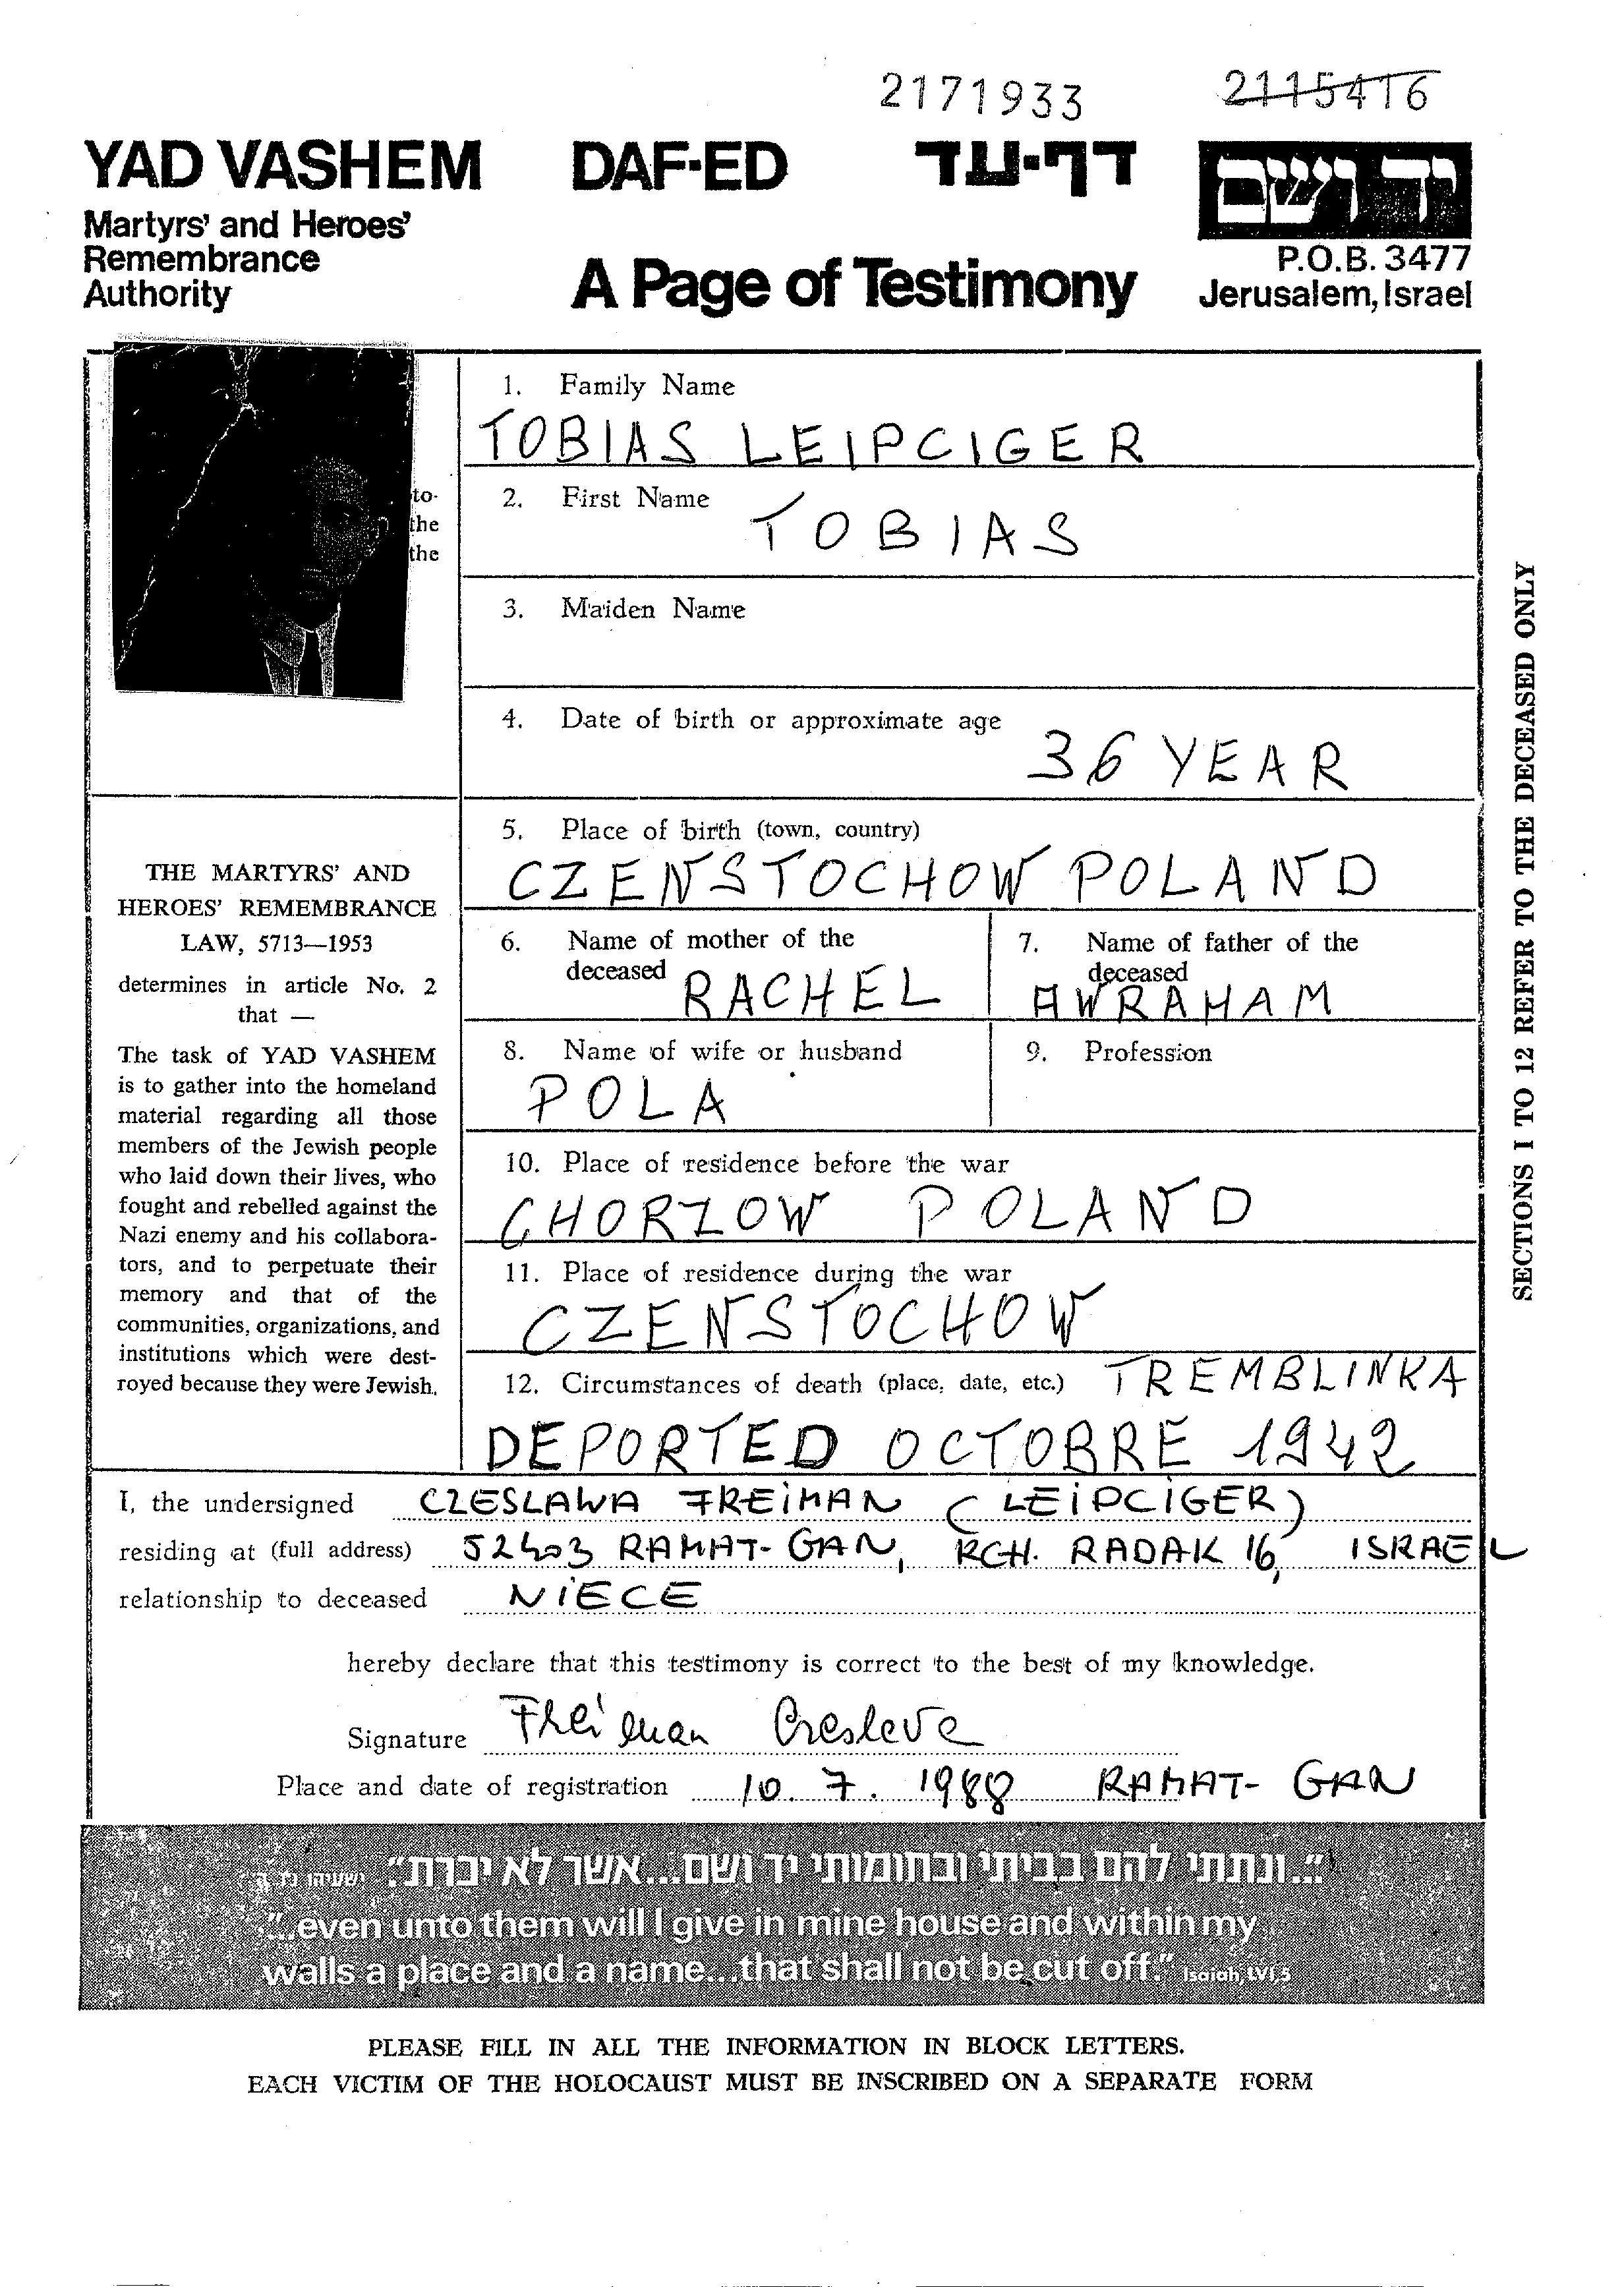 2171933 2115416
YAD VASHEM DAF-ED דף-עד יד ושם
Martyrs' and Heroes'
Remembrance
Authority
A Page of Testimony
P.O.B. 3477
Jerusalem, Israel
to-
the
the
1. Family Name
TOBIAS LEIPCIGER
2. First Name
TOBIAS
3. Maiden Name
4. Date of birth or approximate age
36 YEAR
5. Place of birth (town, country)
CZENSTOCHOW POLAND
6. Name of mother of the
deceased RACHEL
7. Name of father of the
deceased
AWRAHAM
8. Name of wife or husband
POLA
9. Profession
10. Place of residence before the war
CHORZOW POLAND
11. Place of residence during the war
CZENSTOCHOW
12. Circumstances of death (place, date, etc.) TREMBLINKA
DEPORTED OCTOBRE 1942
THE MARTYRS' AND
HEROES' REMEMBRANCE
LAW, 5713—1953
determines in article No. 2
that —
The task of YAD VASHEM
is to gather into the homeland
material regarding all those
members of the Jewish people
who laid down their lives, who
fought and rebelled against the
Nazi enemy and his collabora-
tors, and to perpetuate their
memory and that of the
communities, organizations, and
institutions which were dest-
royed because they were Jewish.
SECTIONS 1 TO 12 REFER TO THE DECEASED ONLY
I, the undersigned CZESLAWA FREIMAN (LEIPCIGER)
residing at (full address) 52403 RAMAT-GAN, RCH. RADAK 16, ISRAEL
relationship to deceased NIECE
hereby declare that this testimony is correct to the best of my knowledge.
Signature Freiman Czesleve
Place and date of registration 10. 7. 1988 RAMAT-GAN
"...ונתתי להם בביתי ובחומותי יד ושם...אשר לא יכרת" ישעיהו נו ה
"...even unto them will I give in mine house and within my
walls a place and a name...that shall not be cut off." Isaiah, LVI,5
PLEASE FILL IN ALL THE INFORMATION IN BLOCK LETTERS.
EACH VICTIM OF THE HOLOCAUST MUST BE INSCRIBED ON A SEPARATE FORM